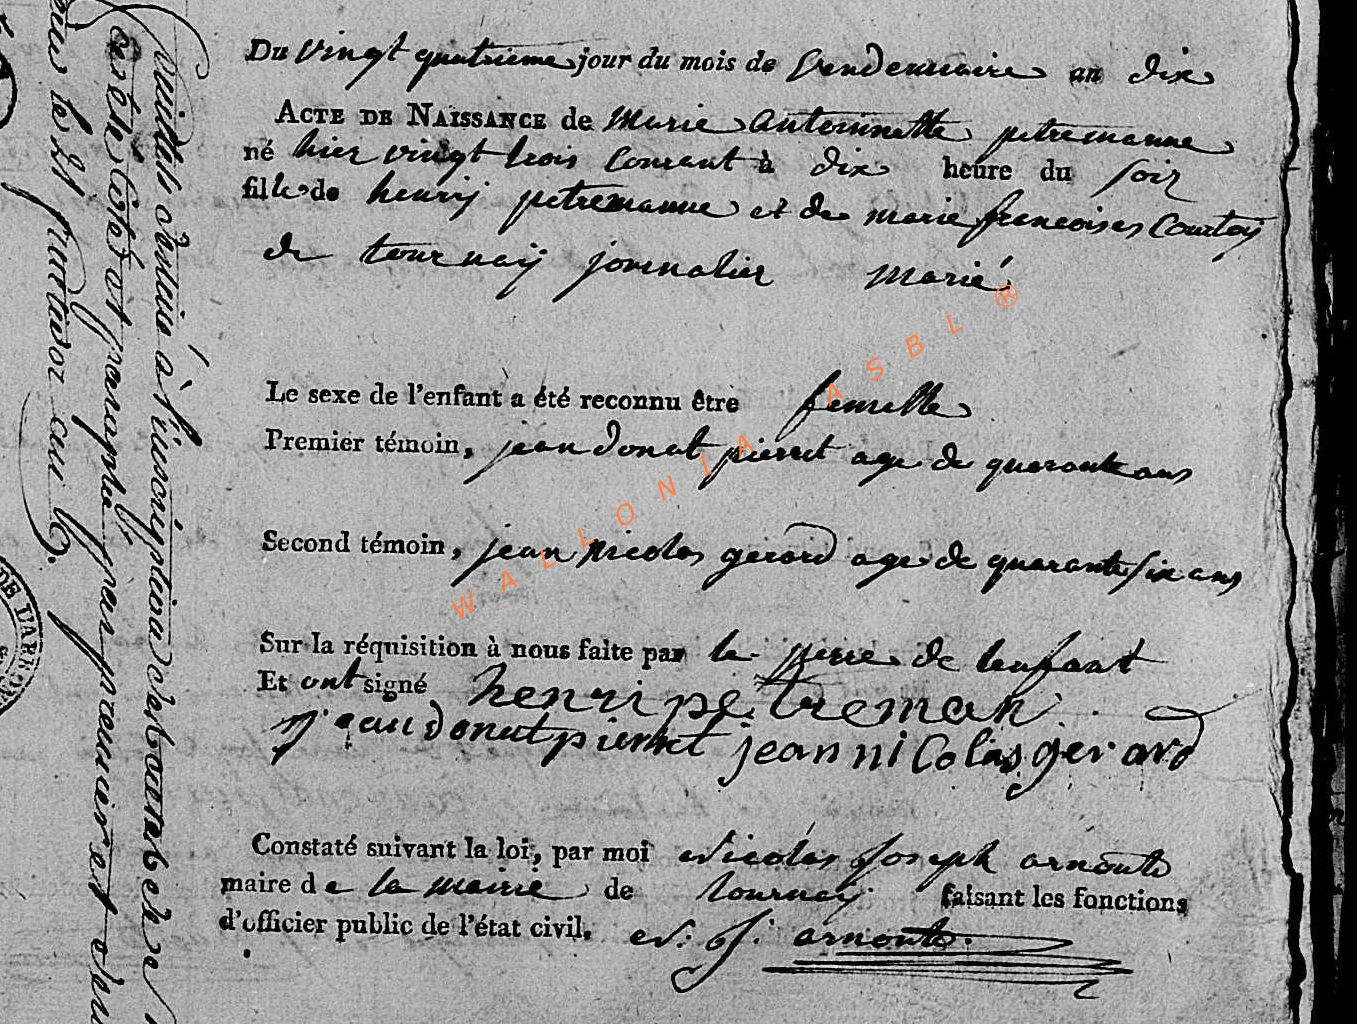 Du vingt quatrieme jour du mois de vendemiaire an dix
ACTE DE NAISSANCE de marie antoinette petremanne
né hier vingt trois courant à dix heure du soir
fille de henrij petremanne et de marie francoises Courtoij
de tournaij jornalier marié
Le sexe de l'enfant a été reconnu être femelle
Premier témoin, jean donat pierret age de quarante ans
Second témoin, jean nicolas gerard age de quarante six ans
Sur la réquisition à nous faite par le perre de lenfant
Et ont signé henri petreman
jean donat pierret jean nicolas gerard
Constaté suivant la loi, par moi Nicolas Joseph arnould
maire de la mairie de tournaij faisant les fonctions
d'officier public de l'état civil. N: J: arnould.
WALLONIA ASBL ®
feuillets destiné à l'inscription des actes de
coté et paraphé par premier et
le 21 fructidor an 9.
DE L'ARRON